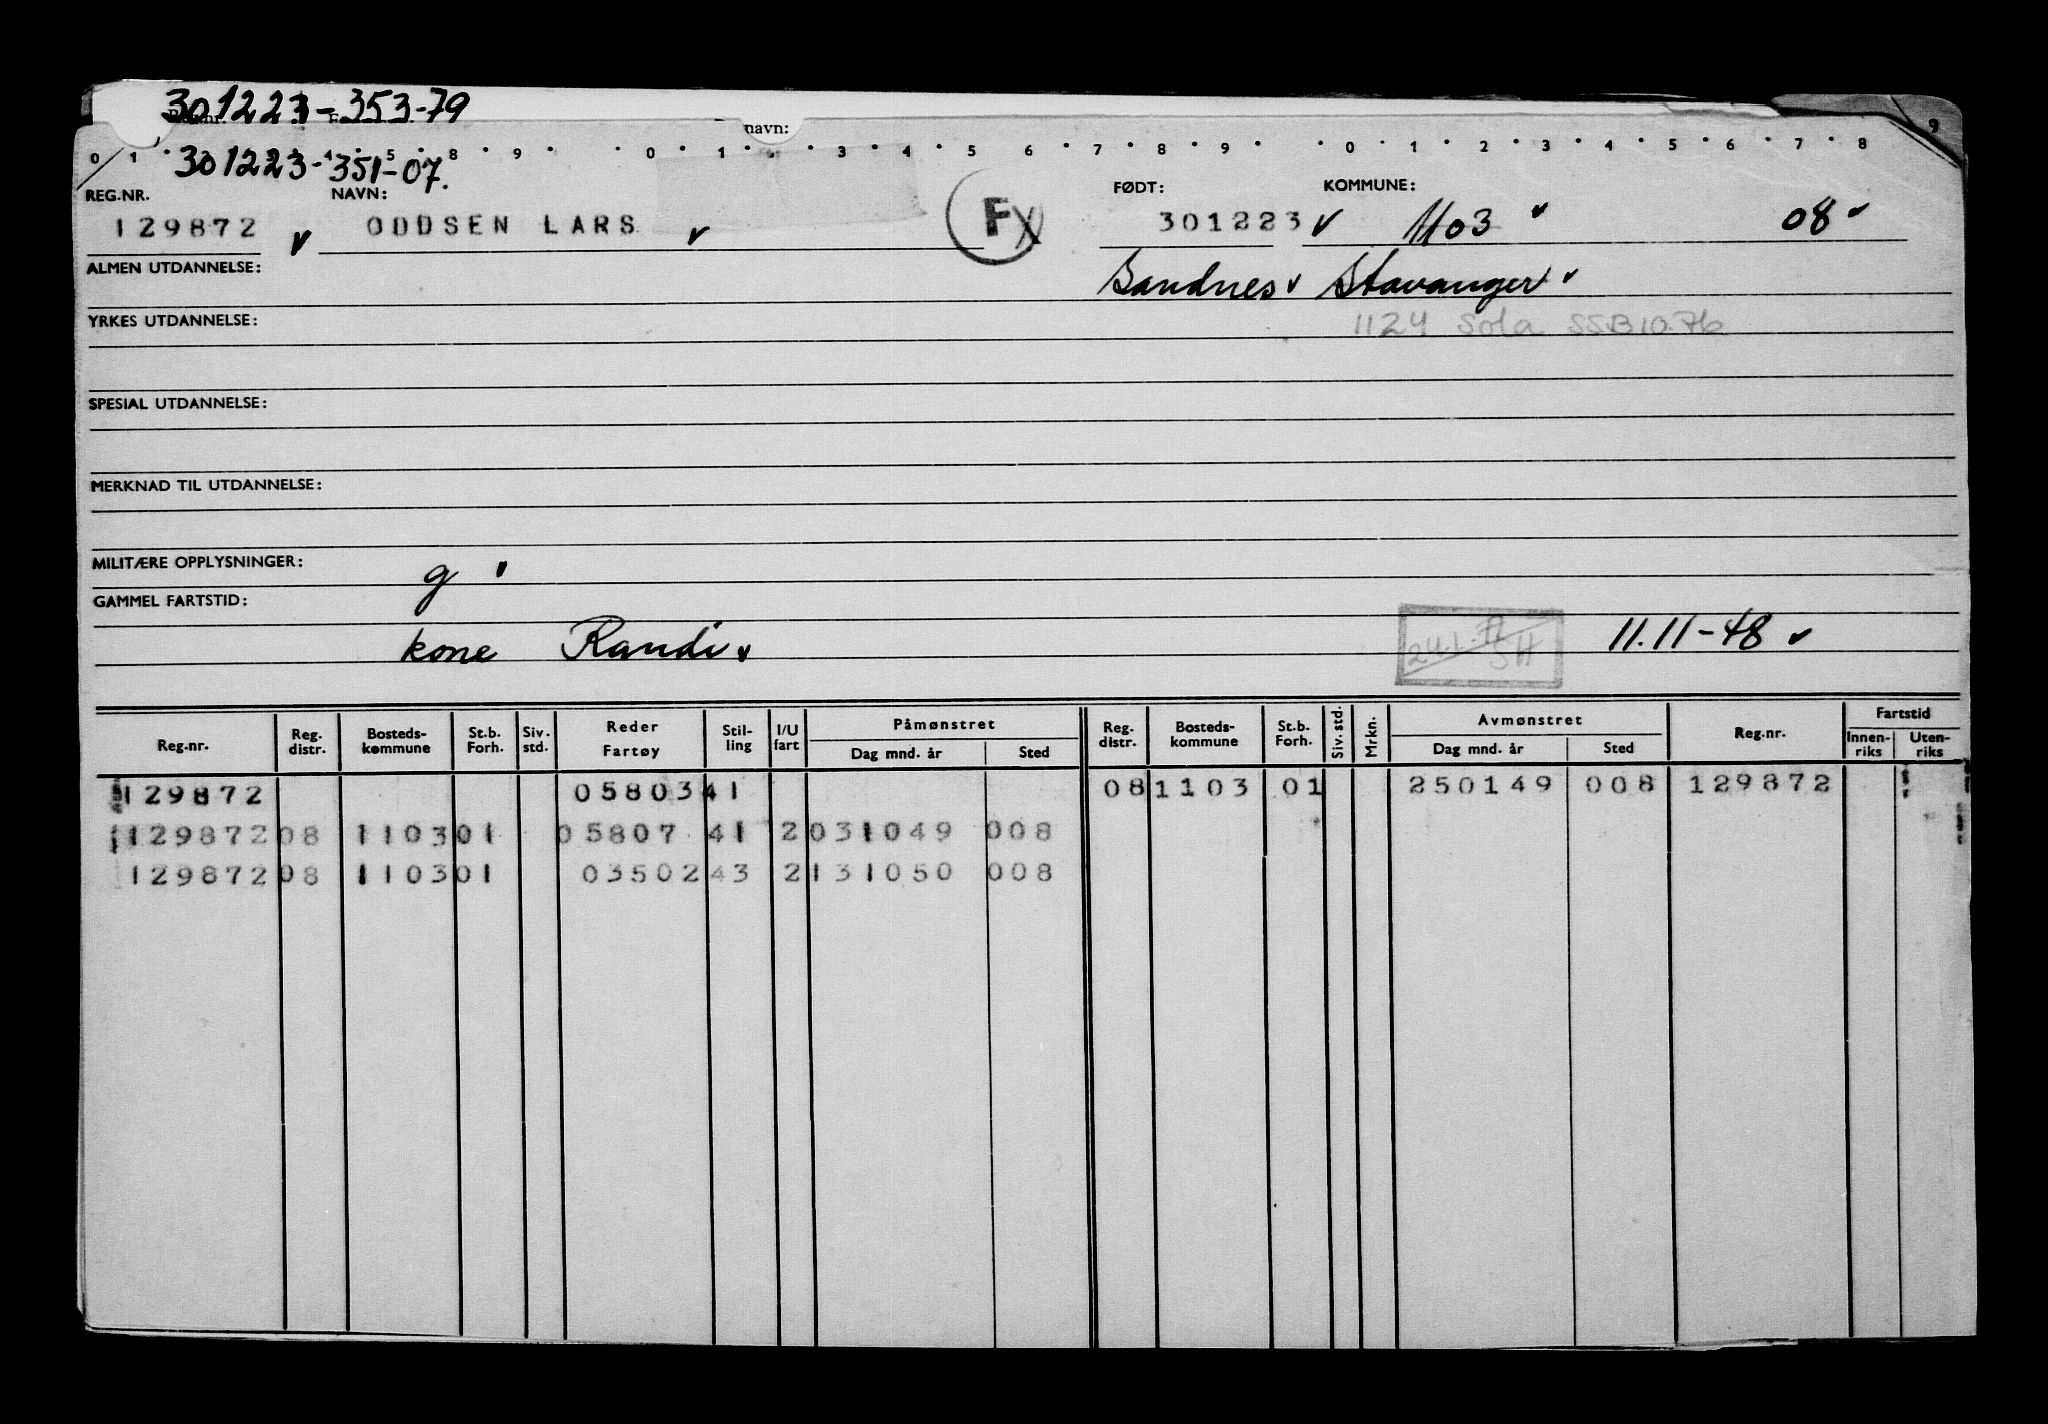 301223-353-79
navn:
9
0 1 4 5 8 9 0 1 3 4 5 6 7 8 9 0 1 2 3 4 5 6 7 8
301223-351-07.
REG.NR. NAVN: FØDT: KOMMUNE:
129872 v ODDSEN LARS v F 301223 v 1103 v 08 v
ALMEN UTDANNELSE: Sandnes v Stavanger v
YRKES UTDANNELSE: 1124 Sola SSB 10.76
SPESIAL UTDANNELSE:
MERKNAD TIL UTDANNELSE:
MILITÆRE OPPLYSNINGER: g v
GAMMEL FARTSTID:
kone Randi v 24.1.71 SH 11.11-48 v
Reg.nr. Reg. distr. Bosteds-kommune St.b. Forh. Siv. std. Reder Fartøy Stil-ling I/U fart Påmønstret Dag mnd. år Sted Reg. distr. Bosteds-kommune St.b. Forh. Siv. std. Mrkn. Avmønstret Dag mnd. år Sted Reg.nr. Fartstid Innen-riks Uten-riks
129872 05803 41 08 1103 01 250149 008 129872
129872 08 1103 01 05807 41 2 031049 008
129872 08 1103 01 03502 43 2 131050 008